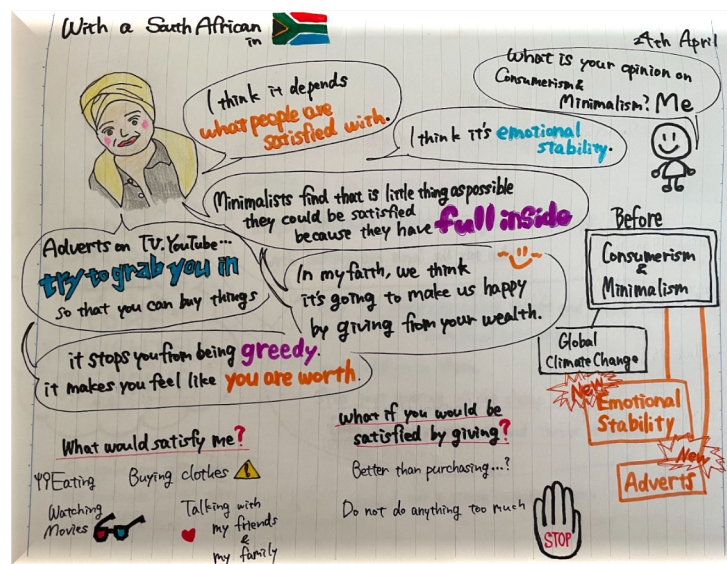 With a South African
in
24th April
What is your opinion on
Consumerism &
Minimalism? Me
I think it depends
what people are
satisfied with.
I think it's emotional
stability.
Minimalists find that is little thing as possible
they could be satisfied
because they have full inside
Adverts on TV. YouTube...
try to grab you in
so that you can buy things
In my faith, we think
it's going to make us happy
by giving from your wealth.
it stops you from being greedy.
it makes you feel like you are worth.
Before
Consumerism
&
Minimalism
Global
Climate Change
New
Emotional
Stability
New
Adverts
What would satisfy me?
Eating
Buying clothes
Watching
Movies
Talking with
my friends
&
my family
What if you would be
satisfied by giving?
Better than purchasing...?
Do not do anything too much
STOP